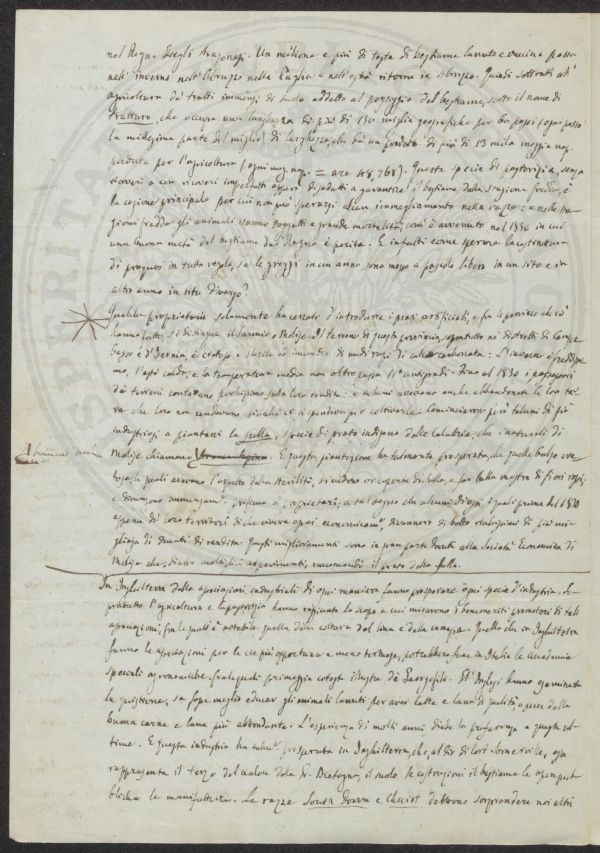 nel Regno degli Aragonesi. Un milione e più di teste di bestiame lanuto e vaccino passa
nell' inverno nell'Abruzzo nella Puglia e nell'està ritorna in Abruzzo. Quindi sottratti all'
agricoltura de' tratti immensi di suolo addetto al passaggio del bestiame, sotto il nome di
tratturo, che occupa una lunghezza di più di 150 miglia geografiche per 60 passi (ogni passo
la millesima parte del miglio) di larghezza, che dà un prodotto di più di 13 mila moggia nap.
perdute per l'agricoltura (ogni mog. nap. = are 48, 268). Questa specie di pastorizia, senza
ricoveri o con ricoveri imperfetti o poco adatti a garantire il bestiame dalla stagione fredda, è
la cagione principale per cui non può sperarsi alcun immegliamento nella razza; e nelle sta-
gioni fredde gli animali vanno soggetti a grande mortalità, com'è avvenuto nel 1850 in cui
una buona metà del bestiame del Regno è perita. E infatti come sperare la estensione
di prati in tutta regola, se le greggi in un anno sono messe a pascolo libero in un sito e in
altro anno in sito diverso?
Qualche proprietario solamente ha cercato d'introdurre i prati artificiali, e fra le provincie che ciò
hanno fatto, si distingue il Sannio o Molise. Il terreno di questa provincia, soprattutto ne' distretti di Campo
basso e d'Isernia è cretoso e sterile ed ingombro di nudi massi di calce carbonata. L'inverno è freddissi
mo, l'està caldo, e la temperatura media non oltrepassa 11° centigradi. Fino al 1830 i possessori
de' terreni contavano pochissimo sulla loro rendita: e taluni avevano anche abbandonate le loro ter
re che loro non rendevano
industriosi a piantarvi la sulla, specie di prato indigeno delle Calabrie, che i naturali di
Molise chiamano
E questa piantagione ha talmente prosperato, che quelle balze cre
tose, le quali avevano l'aspetto della sterilità, si vedono or coperte di bella, a far bella mostra di fiori rossi,
e divengono immenso profitto a' proprietari; a tal segno che alcuni di essi i quali prima del 1830
appena da' loro territori di che vivere assai economicam.e, divennero di botto ricchissimi di più mi-
gliaja di ducati di rendita. Questi miglioramenti sono in gran parte dovuti alla Società Economica di
Molise che, dietro moltiplici esperimenti, raccomandò il prato della sulla.
In Inghilterra delle associazioni industriali di ogni maniera fanno prosperare ogni specie d'industria. So-
prattutto l'agricoltura e la pastorizia hanno raggiunto lo scopo a cui miravano i benemeriti promotori di tali
associazioni, fra le quali è notabile quella della coltura del lino e della canapa. Quello che in Inghilterra
fanno le associazioni per la via più opportuna e meno
potrebbero fare in Italia le Accademie
speciali agronomiche, fra le quali primeggia cotesta illustre de' Georgofili. Gl'Inglesi hanno esaminata
la quistione, se sia meglio educar gli animali lanuti per aver latte e lana di qualità, o pure della
buona carne e lana più abbondante. L'esperienza di molti anni diede la preferenza a queste ul-
time. E questa industria ha talm.e prosperato in Inghilterra, che, al dir di lord Somerville, essa
rappresenta il terzo del valore della G. Bretagna, il suolo le costruzioni il bestiame le opere pub
bliche le manifatture. Le razze South Down e Cheviot debbono sorprendere noi altri